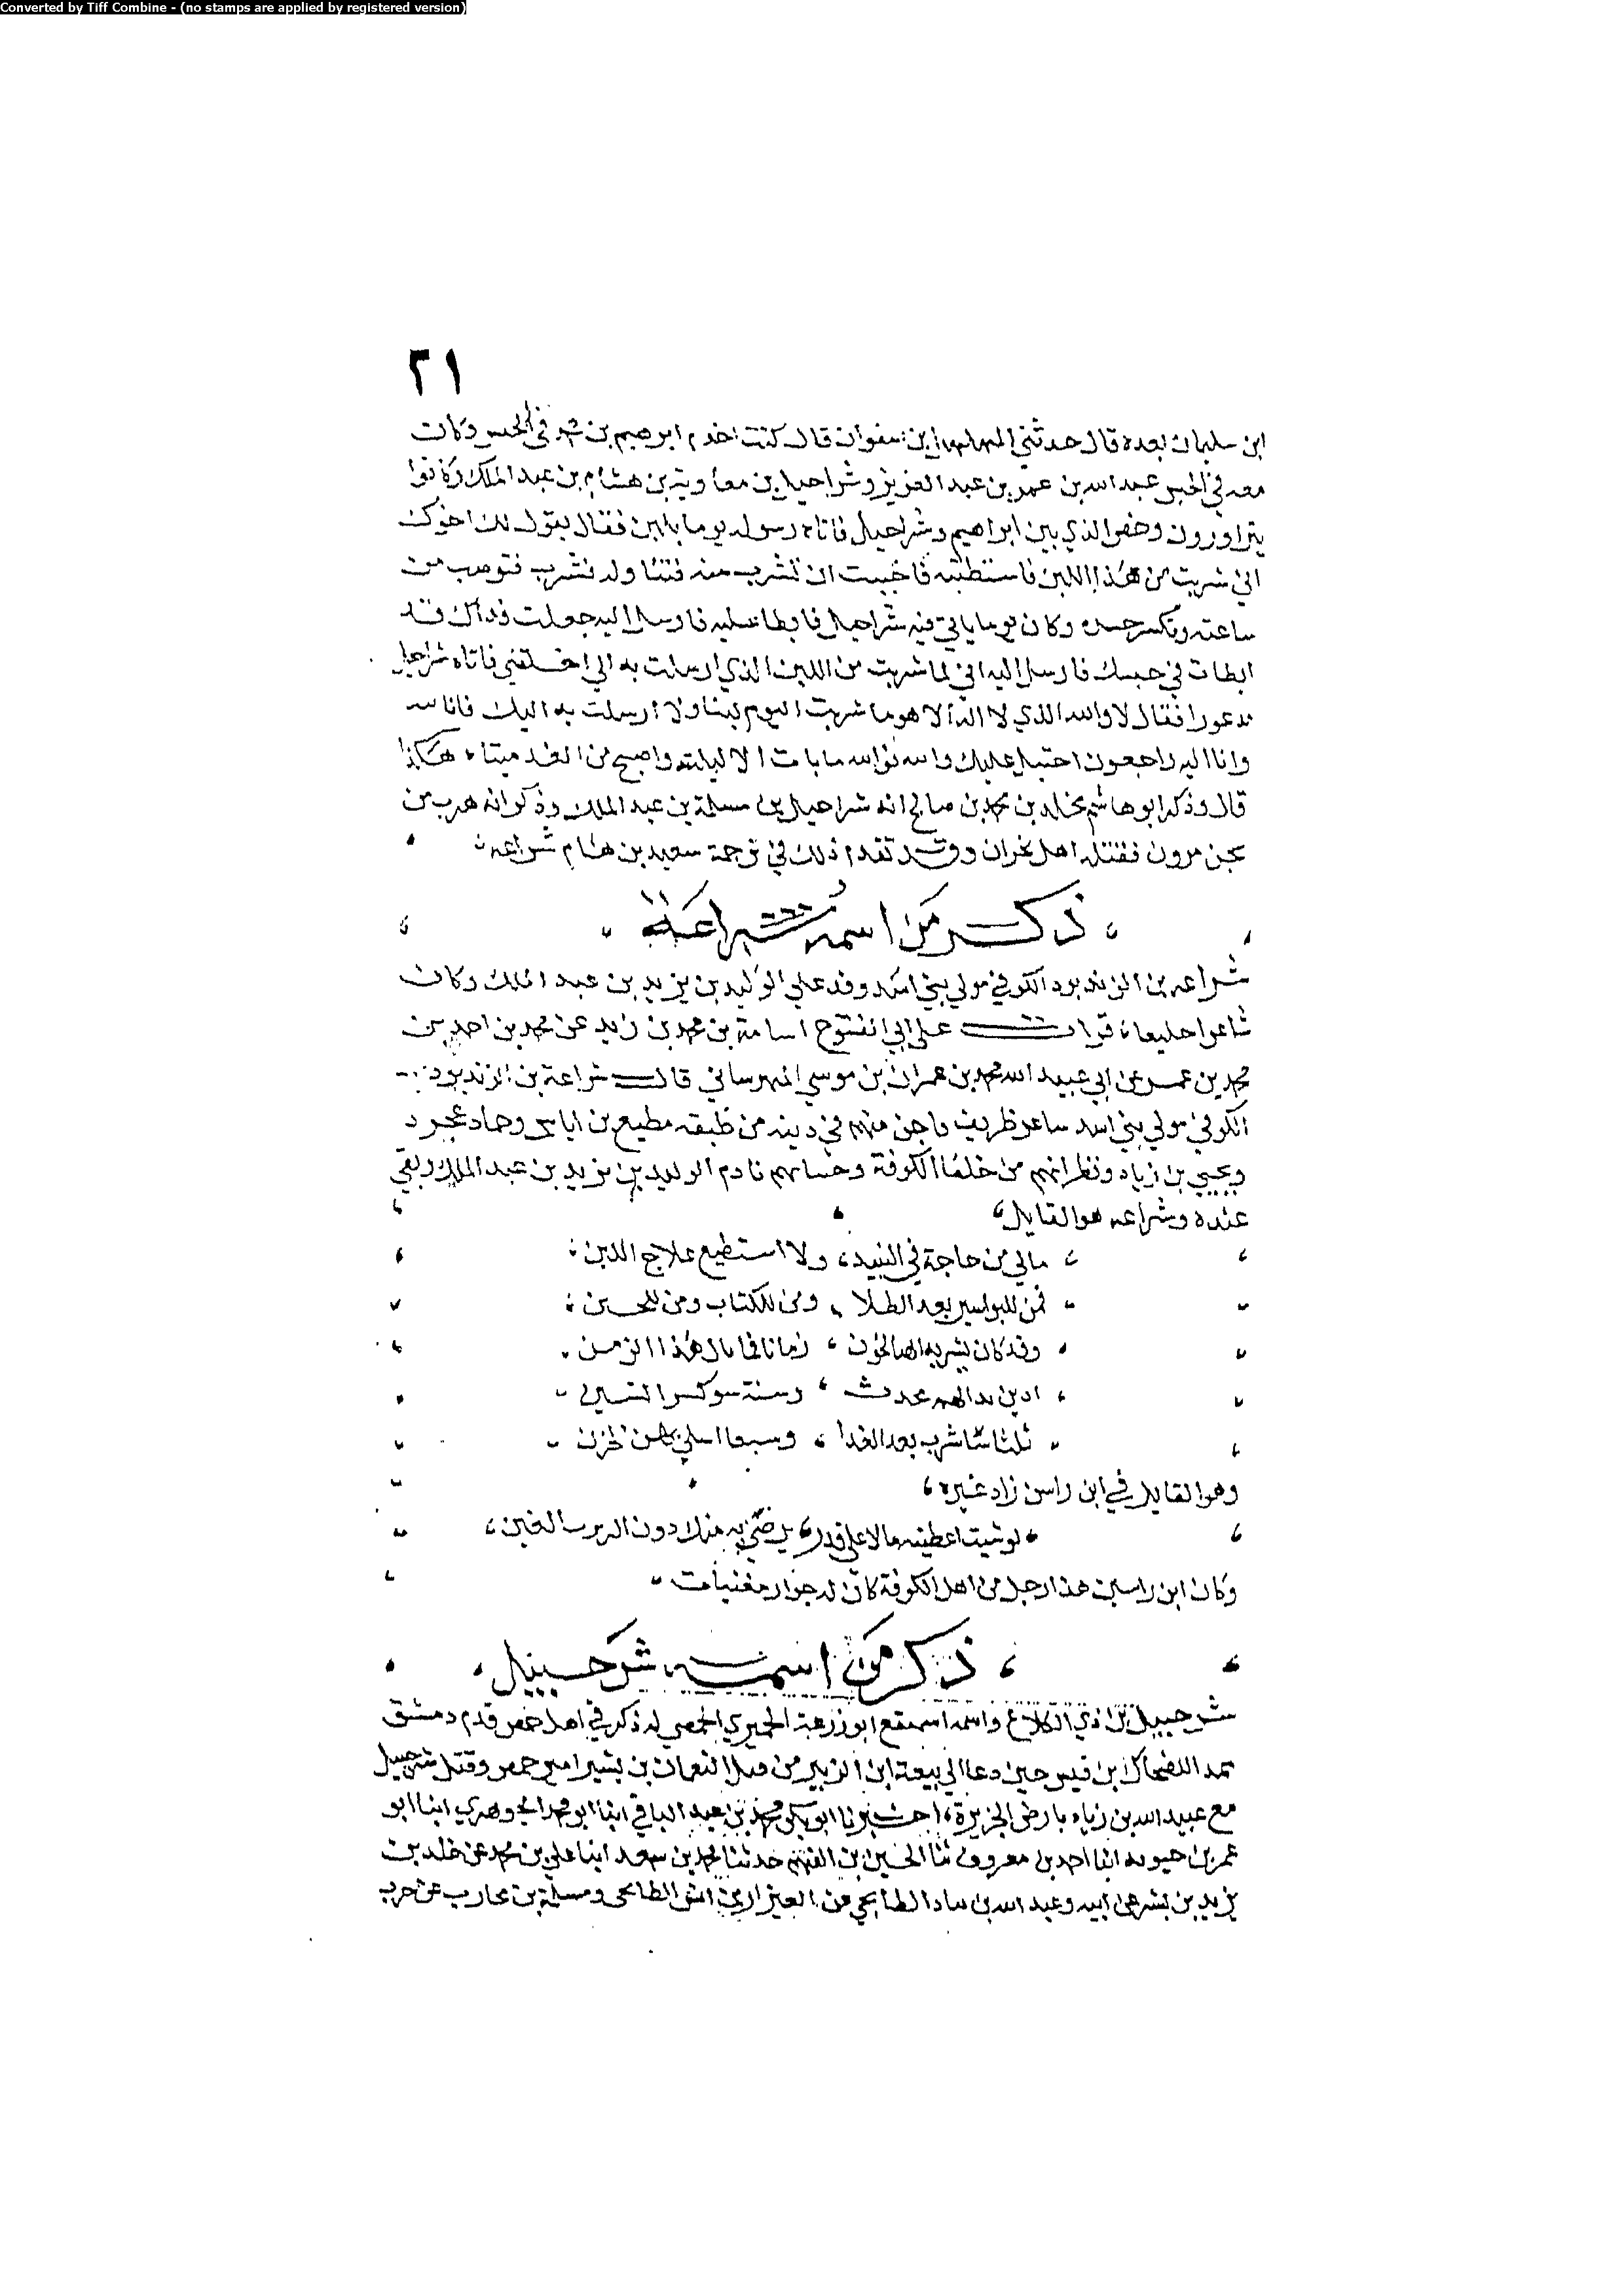 Converted by Tiff Combine - (no stamps are applied by registered version)
٢١
ابن سليمان بعده قال حدثني المهلهل ابن صفوان قال كنت اخدم ابرهيم بن محمد في الحبس وكان
معه في الحبس عبد الله بن عمر بن عبد العزيز وشراحيل بن معاوية بن هشام بن عبد الملك وكانوا
يتزاورون وخص الذي بين ابراهيم وشراحيل فاتاه رسوله يوما بلبن فقال يقول لك اخوك
اني شربت من هذا اللبن فاستطبته فاحببت ان تشرب منه فتناوله فشرب فتوصب من
ساعته وتكسر جسده وكان يوما ياتي فيه شراحيل فابطا عليه فارسل اليه جعلت فداك قد
ابطات في حبسك فارسل اليه اني لما شربت من اللبن الذي ارسلت به الي اخلفني فاتاه شراحيل
مذعورا فقال لا والله الذي لا اله الا هو ما شربت اليوم لبنا ولا ارسلت به اليك فانا لله
وانا اليه راجعون احتيل عليك والله فوالله ما بات الا ليلته واصبح من الغد ميتا، هكذا
قال وذكر ابو هاشم مخلد بن محمد بن صالح انه شراحيل بن مسلمة بن عبد الملك وذكر انه هرب من
سجن مرون فقتله اهل حران وقد تقدم ذلك في ترجمة سعيد بن هشام شراعه
ذكر من اسمه شراعة
شراعه بن الزندبود الكوفي مولي بني اسد وفد علي الوليد بن يزيد بن عبد الملك وكان
شاعرا خليعا، قرات علي ابي الفتوح اسامة بن محمد بن زيد عن محمد بن احمد بن
محمد بن عمر عن ابي عبيد الله محمد بن عمران بن موسي المرزباني قال شراعة بن الزندبود
الكوفي مولي بني اسد شاعر ظريف ماجن متهم في دينه من طبقه مطيع بن اياس وحماد عجرد
ويحيي بن زياد ونظرائهم من خلعا الكوفة وخسائهم نادم الوليد بن يزيد بن عبد الملك وبقي
عنده وشراعه هو القايل
مالي من حاجة في النبيذ، ولا استطيع علاج الدبن
فمن للبواسير بعد الطلا، ومن للكتاب ومن للحسن
وقد كان يشربه الصالحون، زمانا فما بال هذا الزمن
ثلثا سأشرب بعد الغدا، وسبعا اسلي بهن الحزن
وهو القايل في ابن رامين زاد غيره
لو شيت اعطيته مالا علي قدر، يرضي به منك دون الربرب العين
وكان ابن رامين هذا رجل من اهل الكوفة كان له جوار مغنيات
ذكر من اسمه شرحبيل
شرحبيل بن ذي الكلاع واسمه اسميفع ابو زرعة الحميري الحمصي له ذكر في اهل حمص قدم دمشق
ممد الضحاك ابن قيس حين دعا الي بيعة ابن الزبير من قبل النعمان بن بشير امير حمص وقتل شرحبيل
مع عبيد الله بن زياد بارض الجزيرة، اخبرنا ابو بكر محمد بن عبد الباقي ابنا ابو محمد الجوهري ابنا ابو
عمر بن حيويه ابنا احمد بن معروف ثنا الحسين بن الفهم حدثنا محمد بن سعد ابنا علي بن محمد عن خلد بن
يزيد بن بشر عن ابيه وعبد الله بن الطابخي ومسلمة بن محارب عن حرب